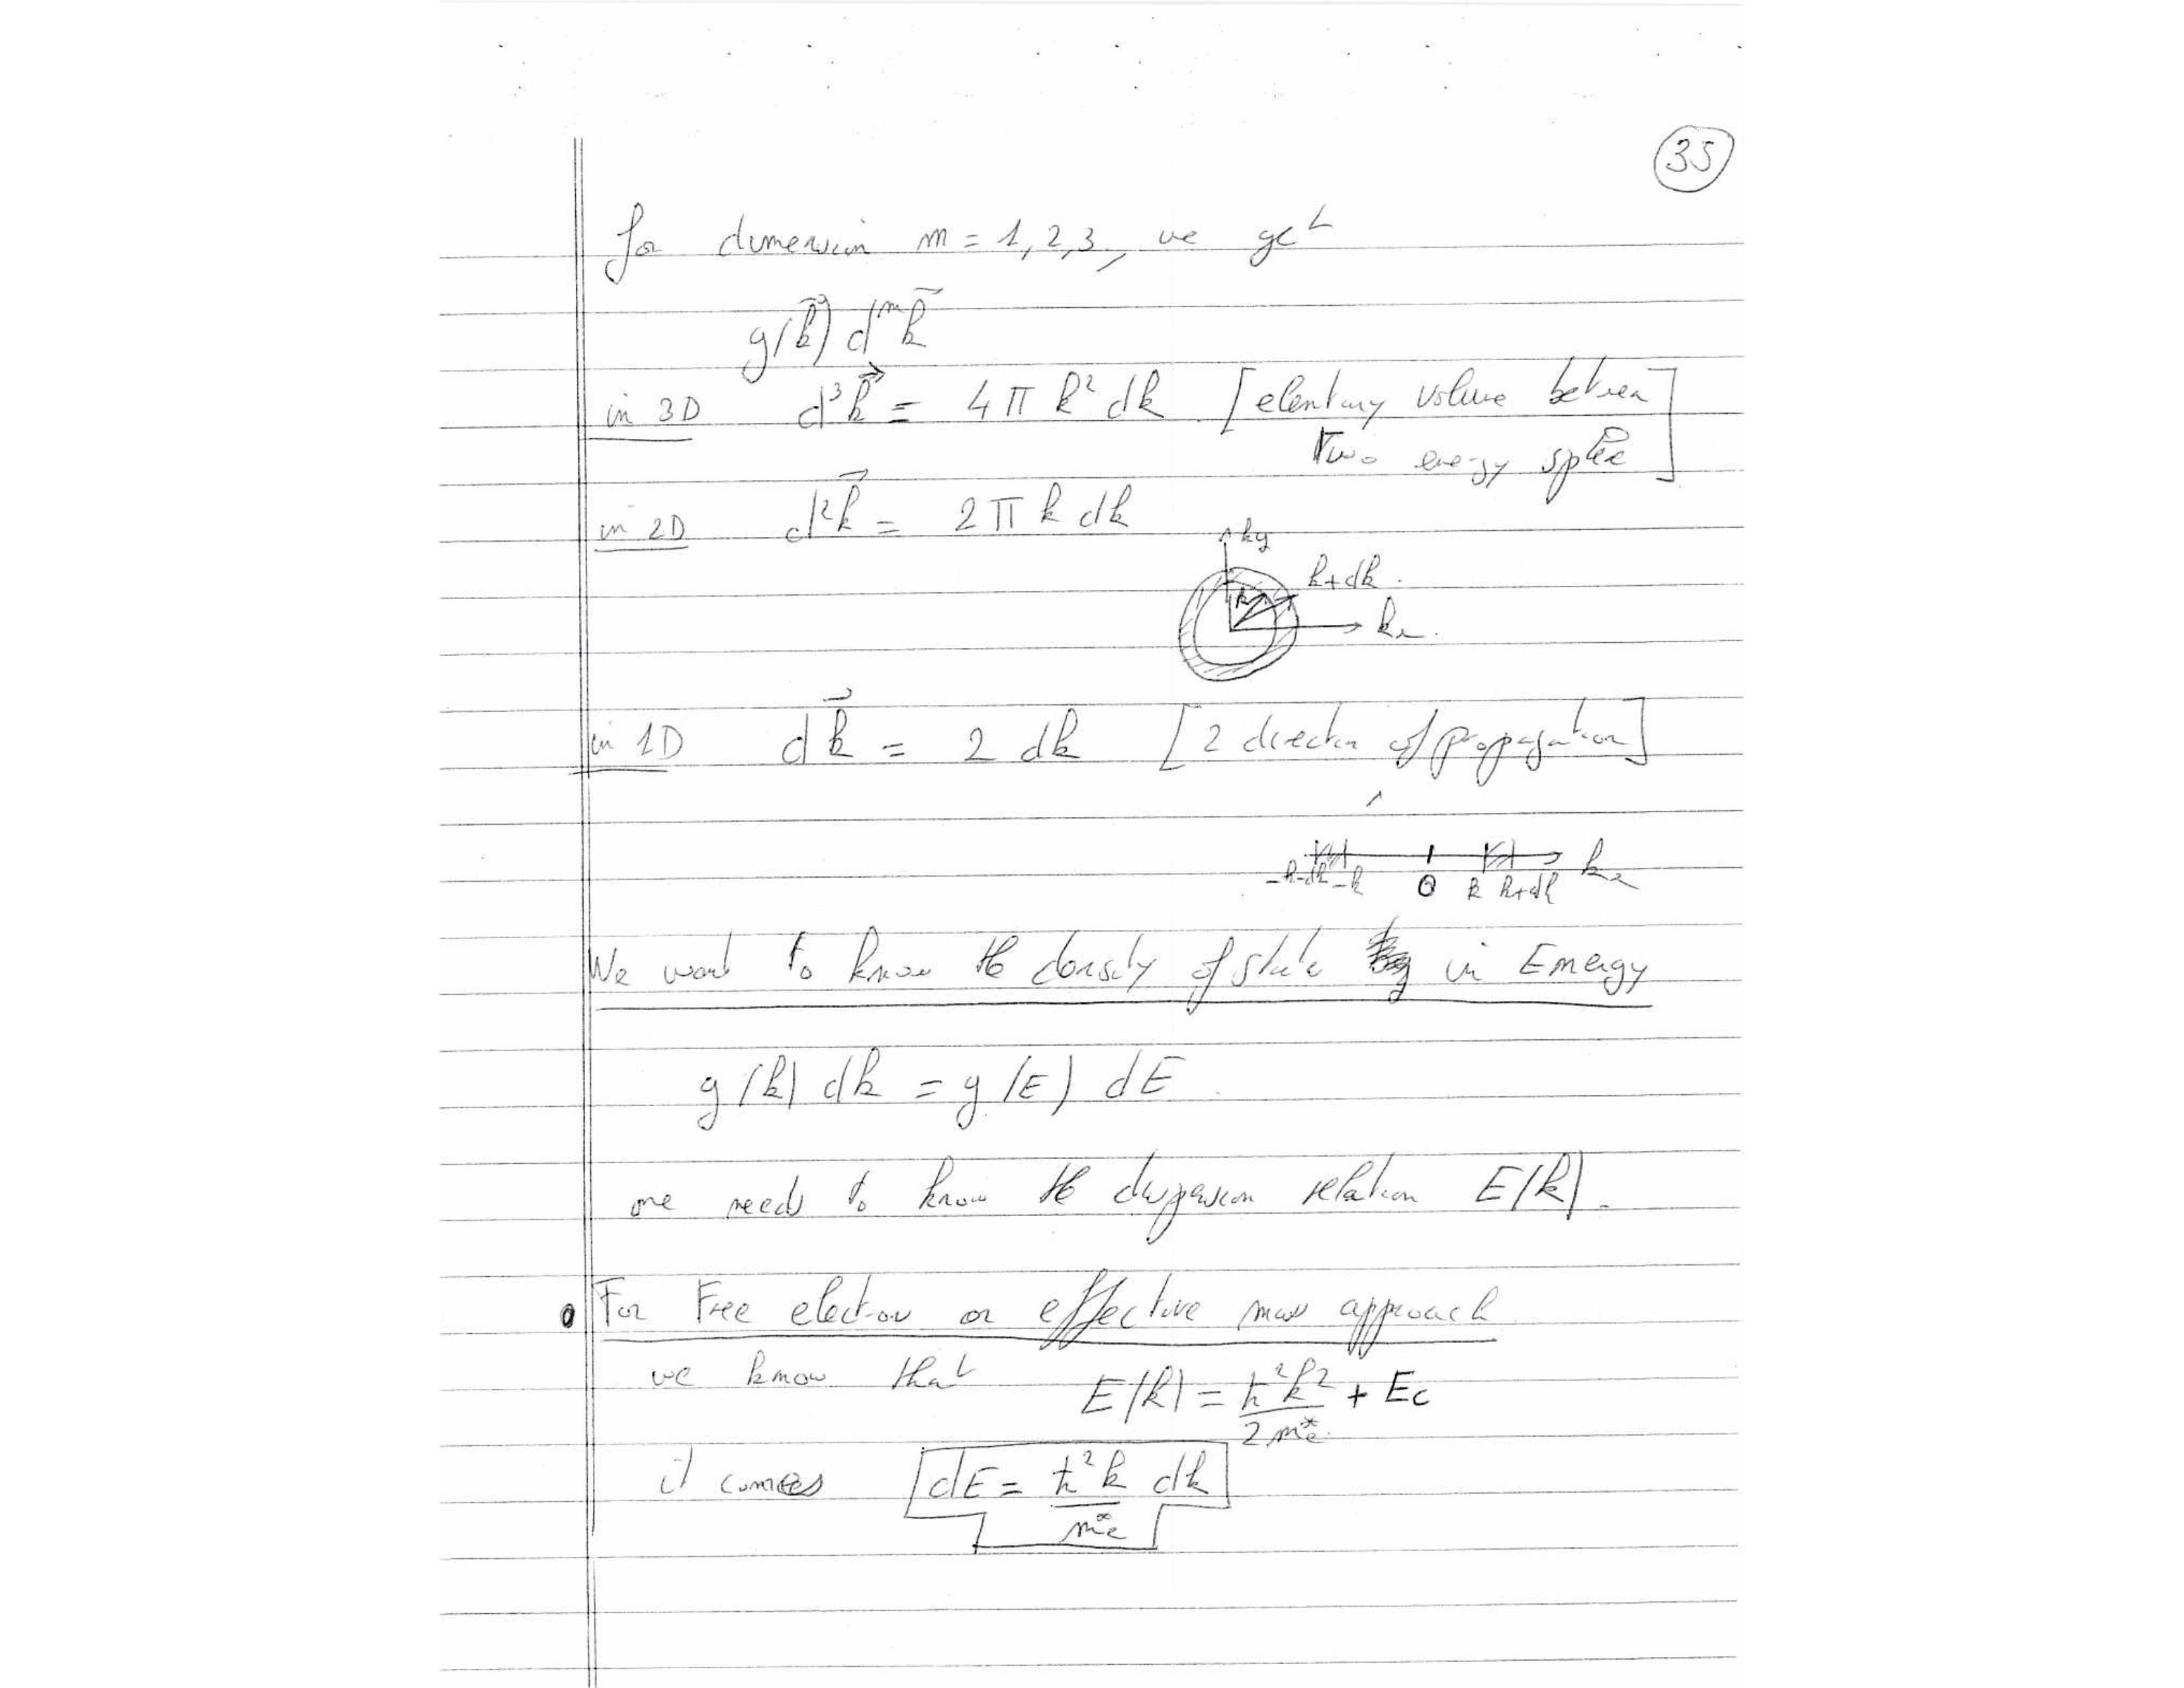 35
for dimension m = 1, 2, 3, we get
g(k⃗) dᵐk⃗
in 3D d³k⃗ = 4π k² dk [elentary volume between
Two energy sphere]
in 2D d²k⃗ = 2π k dk
ky
k+dk
k
kx
in 1D dk⃗ = 2 dk [2 direction of propagation]
-k-dk -k 0 k k+dk kx
We want to know the density of state in Energy
g(k) dk = g(E) dE
one needs to know the dispersion relation E(k).
For Free electron or effective mass approach
we know that E(k) = ħ²k²/2m*e + Ec
it comes dE = ħ²k/m*e dk